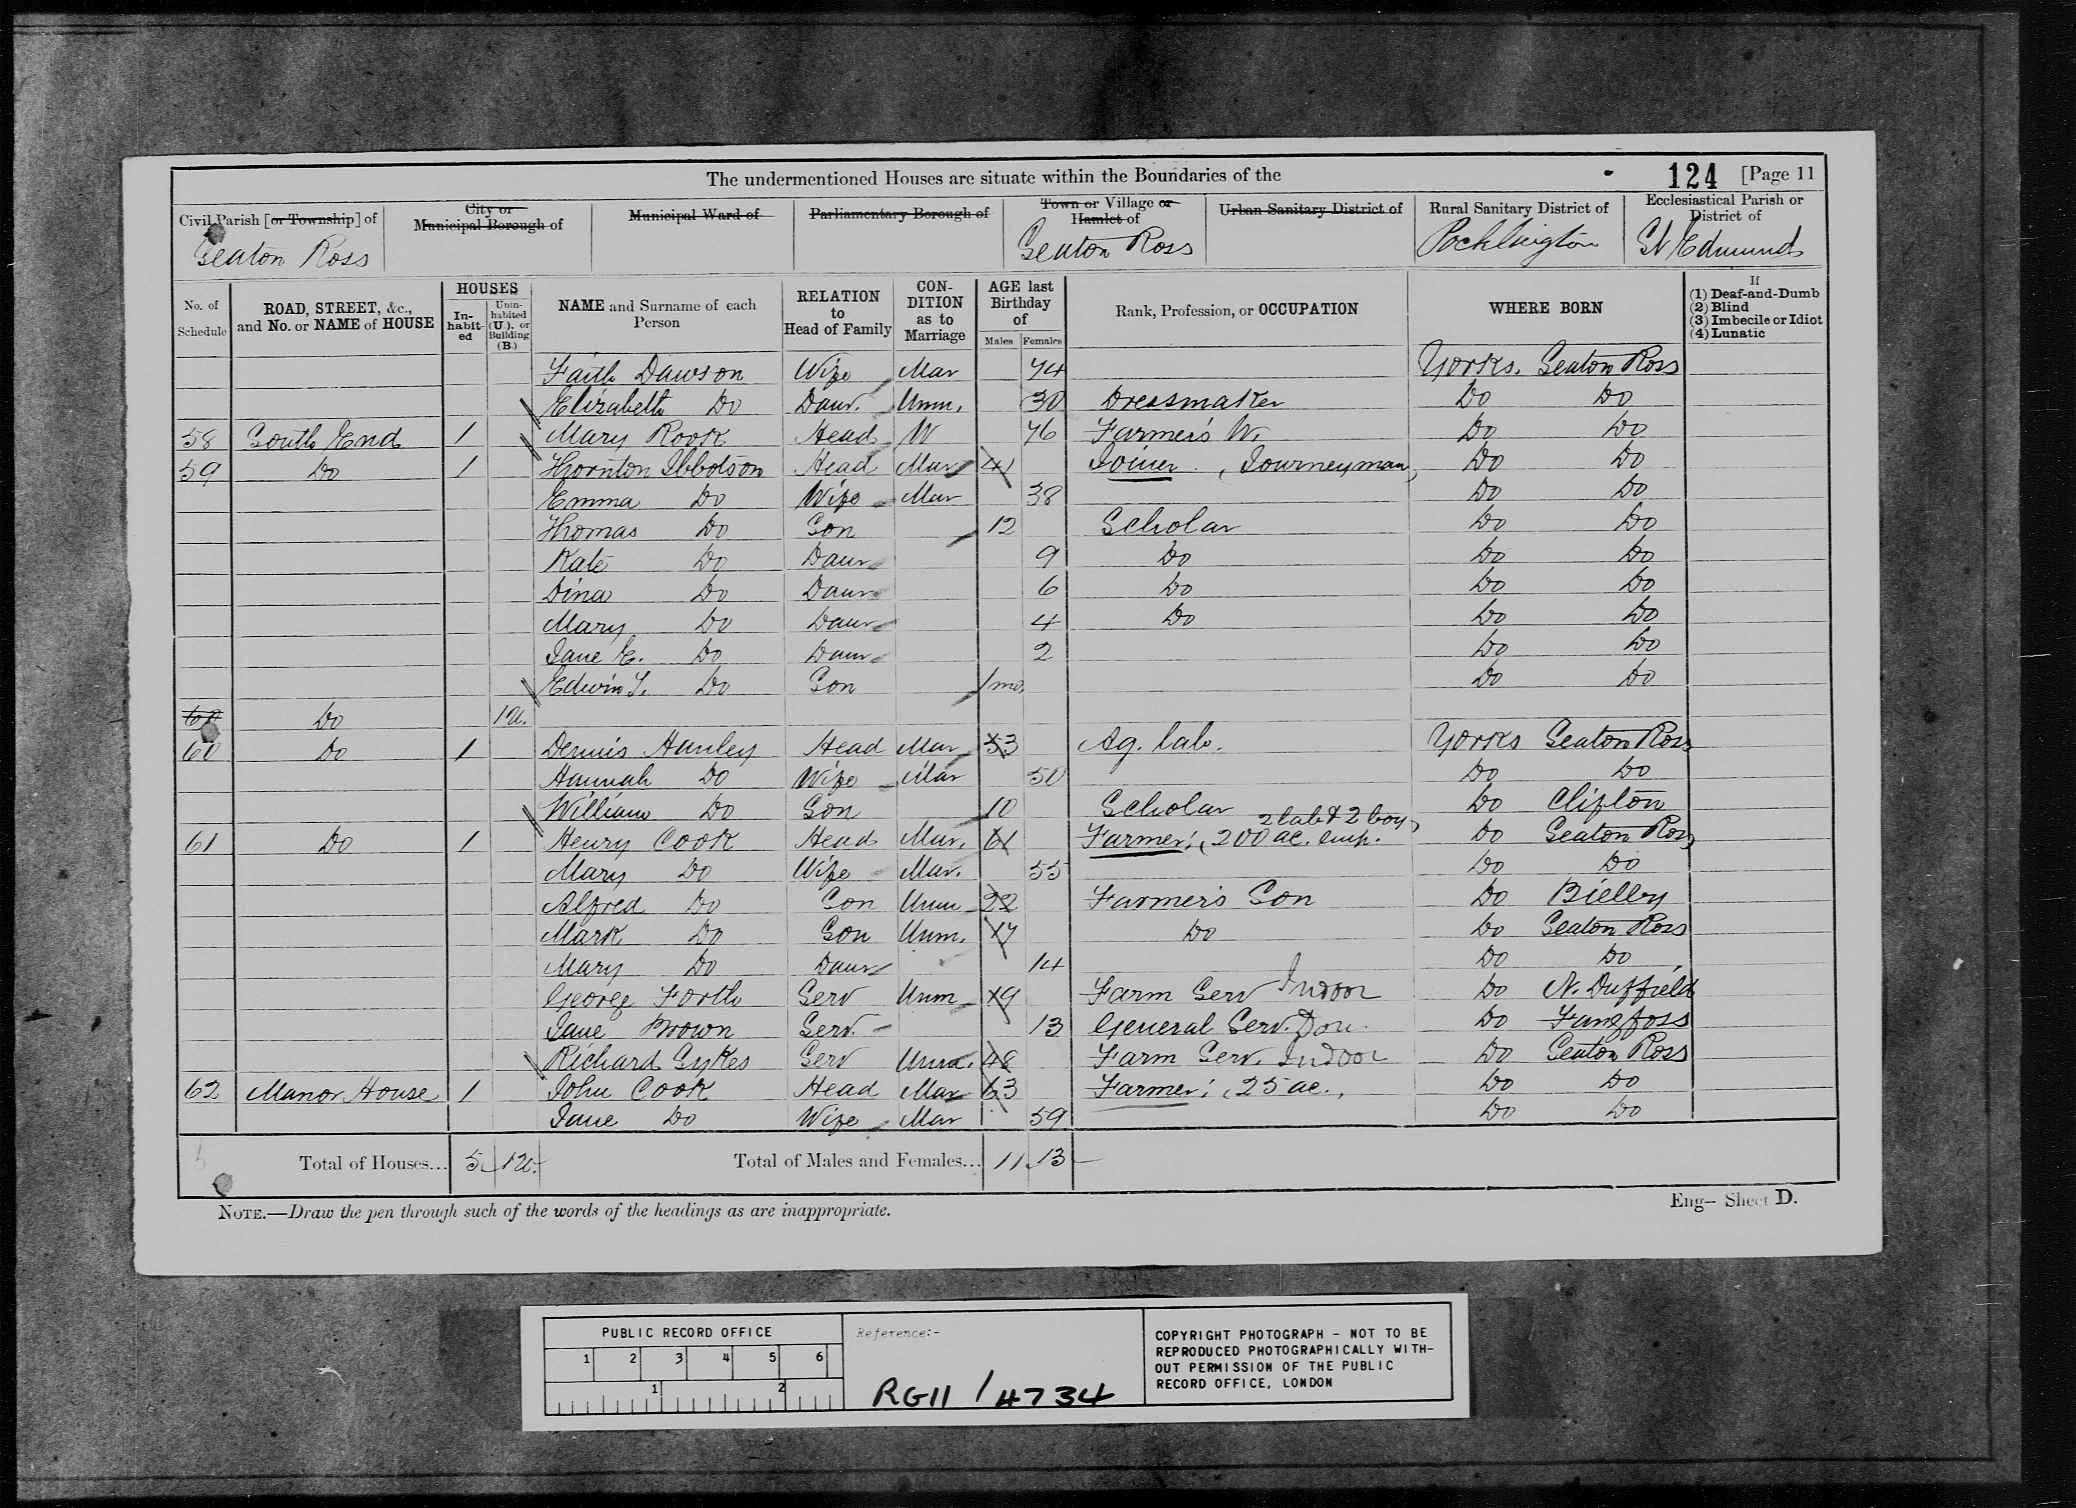 The undermentioned Houses are situate within the Boundaries of the 124 [Page 11
Civil Parish [or Township] of City or Municipal Borough of Municipal Ward of Parliamentary Borough of Town or Village or Hamlet of Urban Sanitary District of Rural Sanitary District of Ecclesiastical Parish or District of
Seaton Ross Seaton Ross Pocklington St Edmunds
No. of Schedule ROAD, STREET, &c., and No. or NAME of HOUSE HOUSES Inhabited Uninhabited (U.), or Building (B.) NAME and Surname of each Person RELATION to Head of Family CONDITION as to Marriage AGE last Birthday of Males Females Rank, Profession, or OCCUPATION WHERE BORN If (1) Deaf-and-Dumb (2) Blind (3) Imbecile or Idiot (4) Lunatic
Faith Dawson Wife Mar 74 Yorks. Seaton Ross
Elizabeth Do Daur. Unm. 30 Dressmaker Do Do
58 South End 1 Mary Rook Head W 76 Farmer's W. Do Do
59 Do 1 Thornton Ibbotson Head Mar 41 Joiner (Journeyman) Do Do
Emma Do Wife Mar 38 Do Do
Thomas Do Son 12 Scholar Do Do
Kate Do Daur 9 Do Do Do
Dina Do Daur 6 Do Do Do
Mary Do Daur 4 Do Do Do
Jane E. Do Daur 2 Do Do
Edwin T. Do Son 1 mo. Do Do
Do 1 U.
60 Do 1 Dennis Hanley Head Mar 53 Ag. lab. Yorks Seaton Ross
Hannah Do Wife Mar 50 Do Do
William Do Son 10 Scholar Do Clifton
61 Do 1 Henry Cook Head Mar. 61 Farmer: (200 ac. emp. 2 lab & 2 boys) Do Seaton Ross
Mary Do Wife Mar. 55 Do Do
Alfred Do Son Unm 22 Farmer's Son Do Bielby
Mark Do Son Unm. 17 Do Do Seaton Ross
Mary Do Daur 14 Do Do
George Forth Serv Unm 19 Farm Serv Indoor Do N. Duffield
Jane Brown Serv. 13 General Serv. Dom. Do Fangfoss
Richard Sykes Serv Unm. 48 Farm Serv. Indoor Do Seaton Ross
62 Manor House 1 John Cook Head Mar 63 Farmer: (25 ac.) Do Do
Jane Do Wife Mar 59 Do Do
Total of Houses... 5 1U. Total of Males and Females... 11 13
NOTE.—Draw the pen through such of the words of the headings as are inappropriate.
Eng– Sheet D.
PUBLIC RECORD OFFICE
1 2 3 4 5 6
1 2
Reference:-
RG11 / 4734
COPYRIGHT PHOTOGRAPH – NOT TO BE
REPRODUCED PHOTOGRAPHICALLY WITH-
OUT PERMISSION OF THE PUBLIC
RECORD OFFICE, LONDON